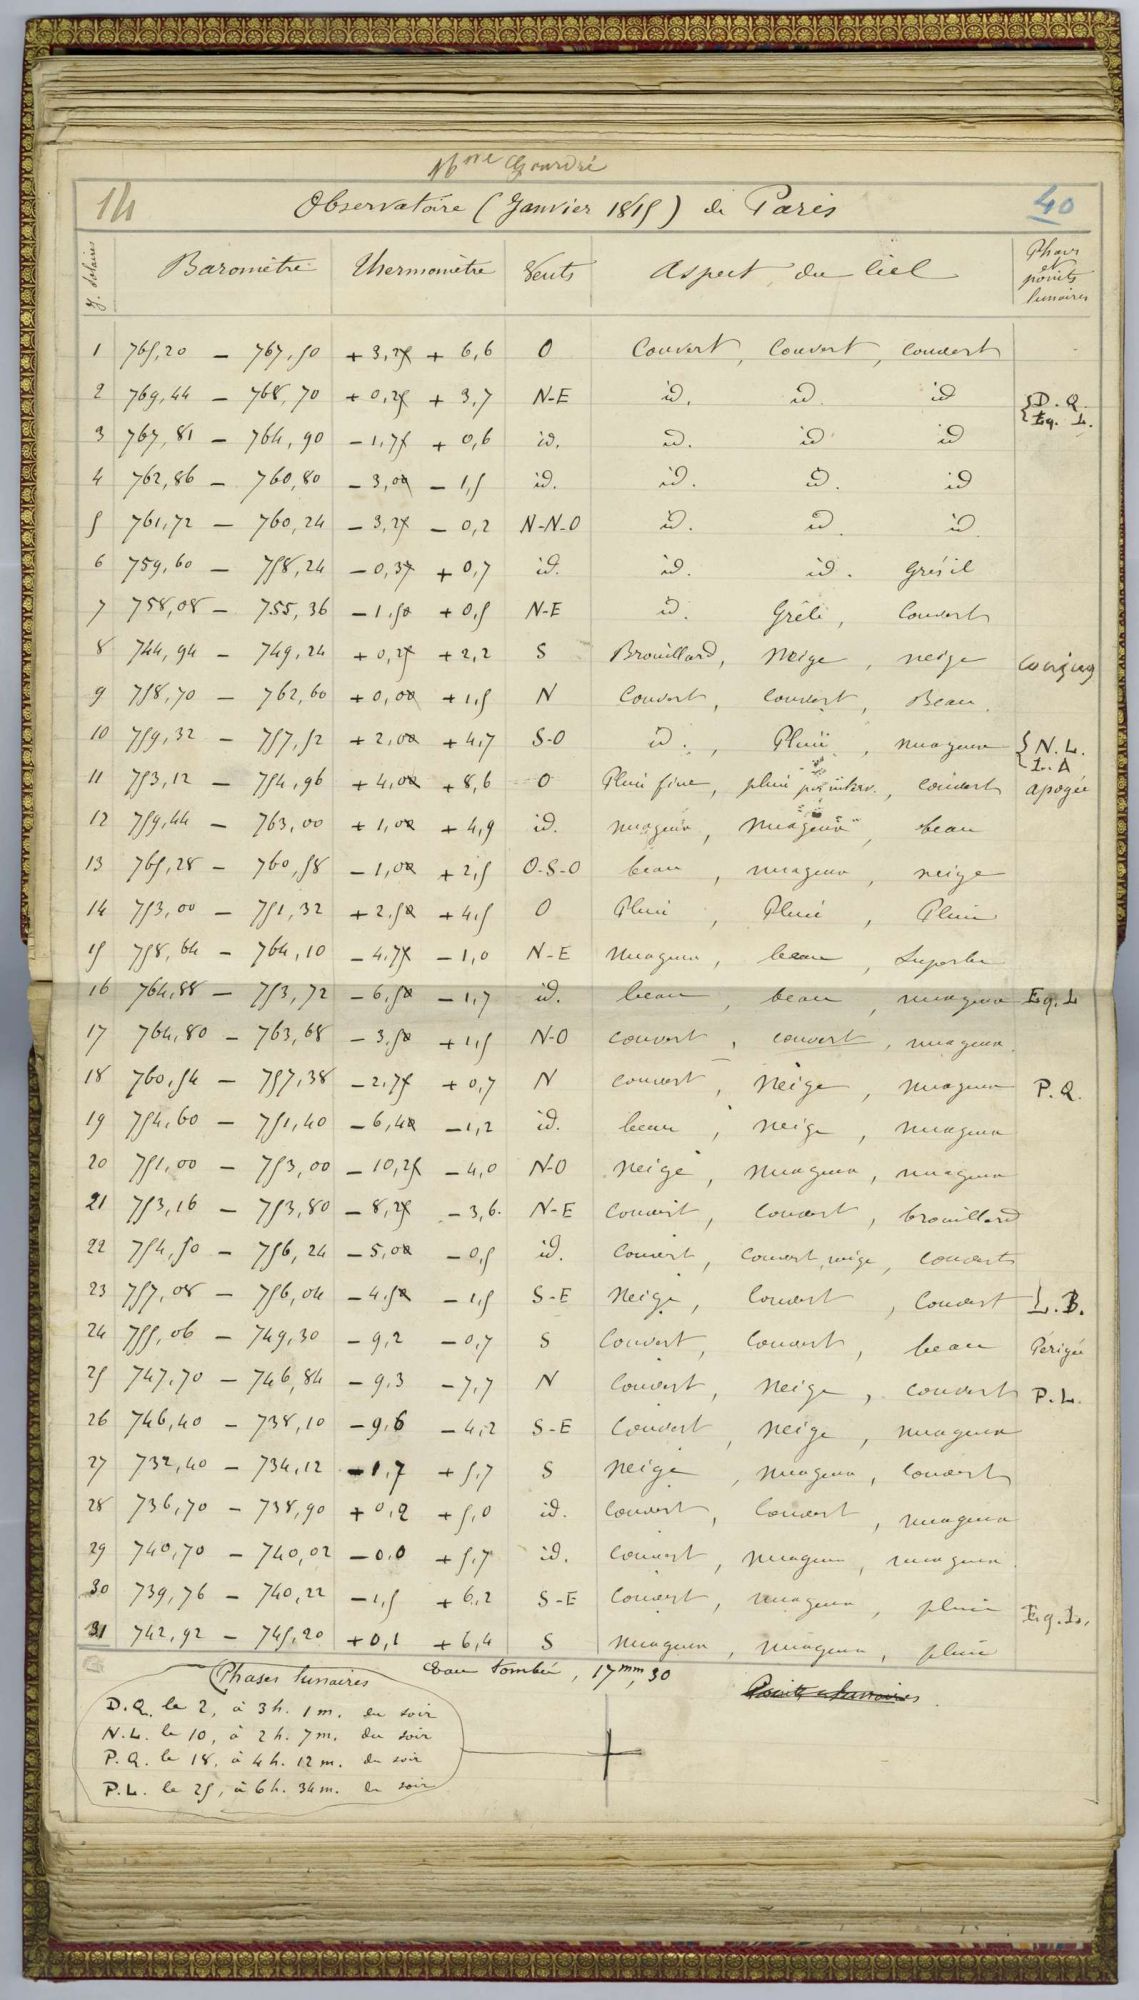 14
Observatoire (Janvier 1815) de Paris
40
J. solaires Baromètre Thermomètre Vents Aspect du Ciel Phases et points lunaires
1 765,20 — 767,50 + 3,25 + 6,6 O Couvert, Couvert, couvert
2 769,44 — 768,70 + 0,25 + 3,7 N-E id. id. id { D. Q.
Eq. L.
3 767,81 — 764,90 — 1,75 + 0,6 id. id. id id
4 762,86 — 760,80 — 3,00 — 1,5 id. id. id. id
5 761,72 — 760,24 — 3,25 — 0,2 N-N-O id. id id.
6 759,60 — 758,24 — 0,37 + 0,7 id. id. id. Grésil
7 758,08 — 755,36 — 1.50 + 0,5 N-E id. Grêle, Couvert
8 744,94 — 749,24 + 0,25 + 2,2 S Brouillard, Neige, neige
9 758,70 — 762,60 + 0,00 + 1,5 N Couvert, couvert, Beau.
10 759,32 — 757,52 + 2,00 + 4,7 S-O id., Pluie, nuageux { N. L.
L. A
11 753,12 — 754,96 + 4,00 + 8,6 O Pluie fine, pluie par interv., couvert apogée
12 759,44 — 763,00 + 1,00 + 4,9 id. nuageux, nuageux, beau
13 765,28 — 760,58 — 1,00 + 2,5 O-S-O beau, nuageux, neige
14 753,00 — 751,32 + 2.50 + 4,5 O Pluie, Pluie, Pluie
15 758,64 — 764,10 — 4,75 — 1,0 N-E Nuageux, beau, Superbe
16 764,88 — 753,72 — 6,50 — 1,7 id. beau, beau, nuageux Eq. L
17 764,80 — 763,68 — 3,50 + 1,5 N-O couvert, couvert, nuageux.
18 760,54 — 757,38 — 2,75 + 0,7 N couvert, Neige, nuageux P. Q.
19 754,60 — 751,40 — 6,40 — 1,2 id. beau, neige, nuageux
20 751,00 — 753,00 — 10,25 — 4,0 N-O Neige, nuageux, nuageux
21 753,16 — 753,80 — 8,25 — 3,6. N-E Couvert, couvert, brouillard
22 754,50 — 756,24 — 5,00 — 0,5 id. Couvert, couvert, neige, couvert
23 757,08 — 756,04 — 4.50 — 1,5 S-E Neige, Couvert, couvert L. B.
24 755,06 — 749,30 — 9,2 — 0,7 S Couvert, couvert, beau Périgée
25 747,70 — 746,84 — 9,3 — 7,7 N Couvert, Neige, couvert P. L.
26 746,40 — 738,10 — 9,6 — 4,2 S-E Couvert, neige, nuageux
27 732,40 — 734,12 — 1,7 + 5,7 S Neige, nuageux, couvert
28 736,70 — 738,90 + 0,2 + 5,0 id. Couvert, Couvert, nuageux
29 740,70 — 740,02 — 0,0 + 5,7 id. Couvert, nuageux, nuageux.
30 739,76 — 740,22 — 1,5 + 6,2 S-E Couvert, nuageux, pluie Eq. L.
31 742,92 — 745,20 + 0,1 + 6,4 S nuageux, nuageux, pluie
Eau tombée, 17mm,30
Phases lunaires
D.Q. le 2, à 3 h. 1 m. du soir
N.L. le 10, à 2 h. 7 m. du soir
P.Q. le 18, à 4 h. 12 m. du soir
P.L. le 25, à 6 h. 34 m. du soir